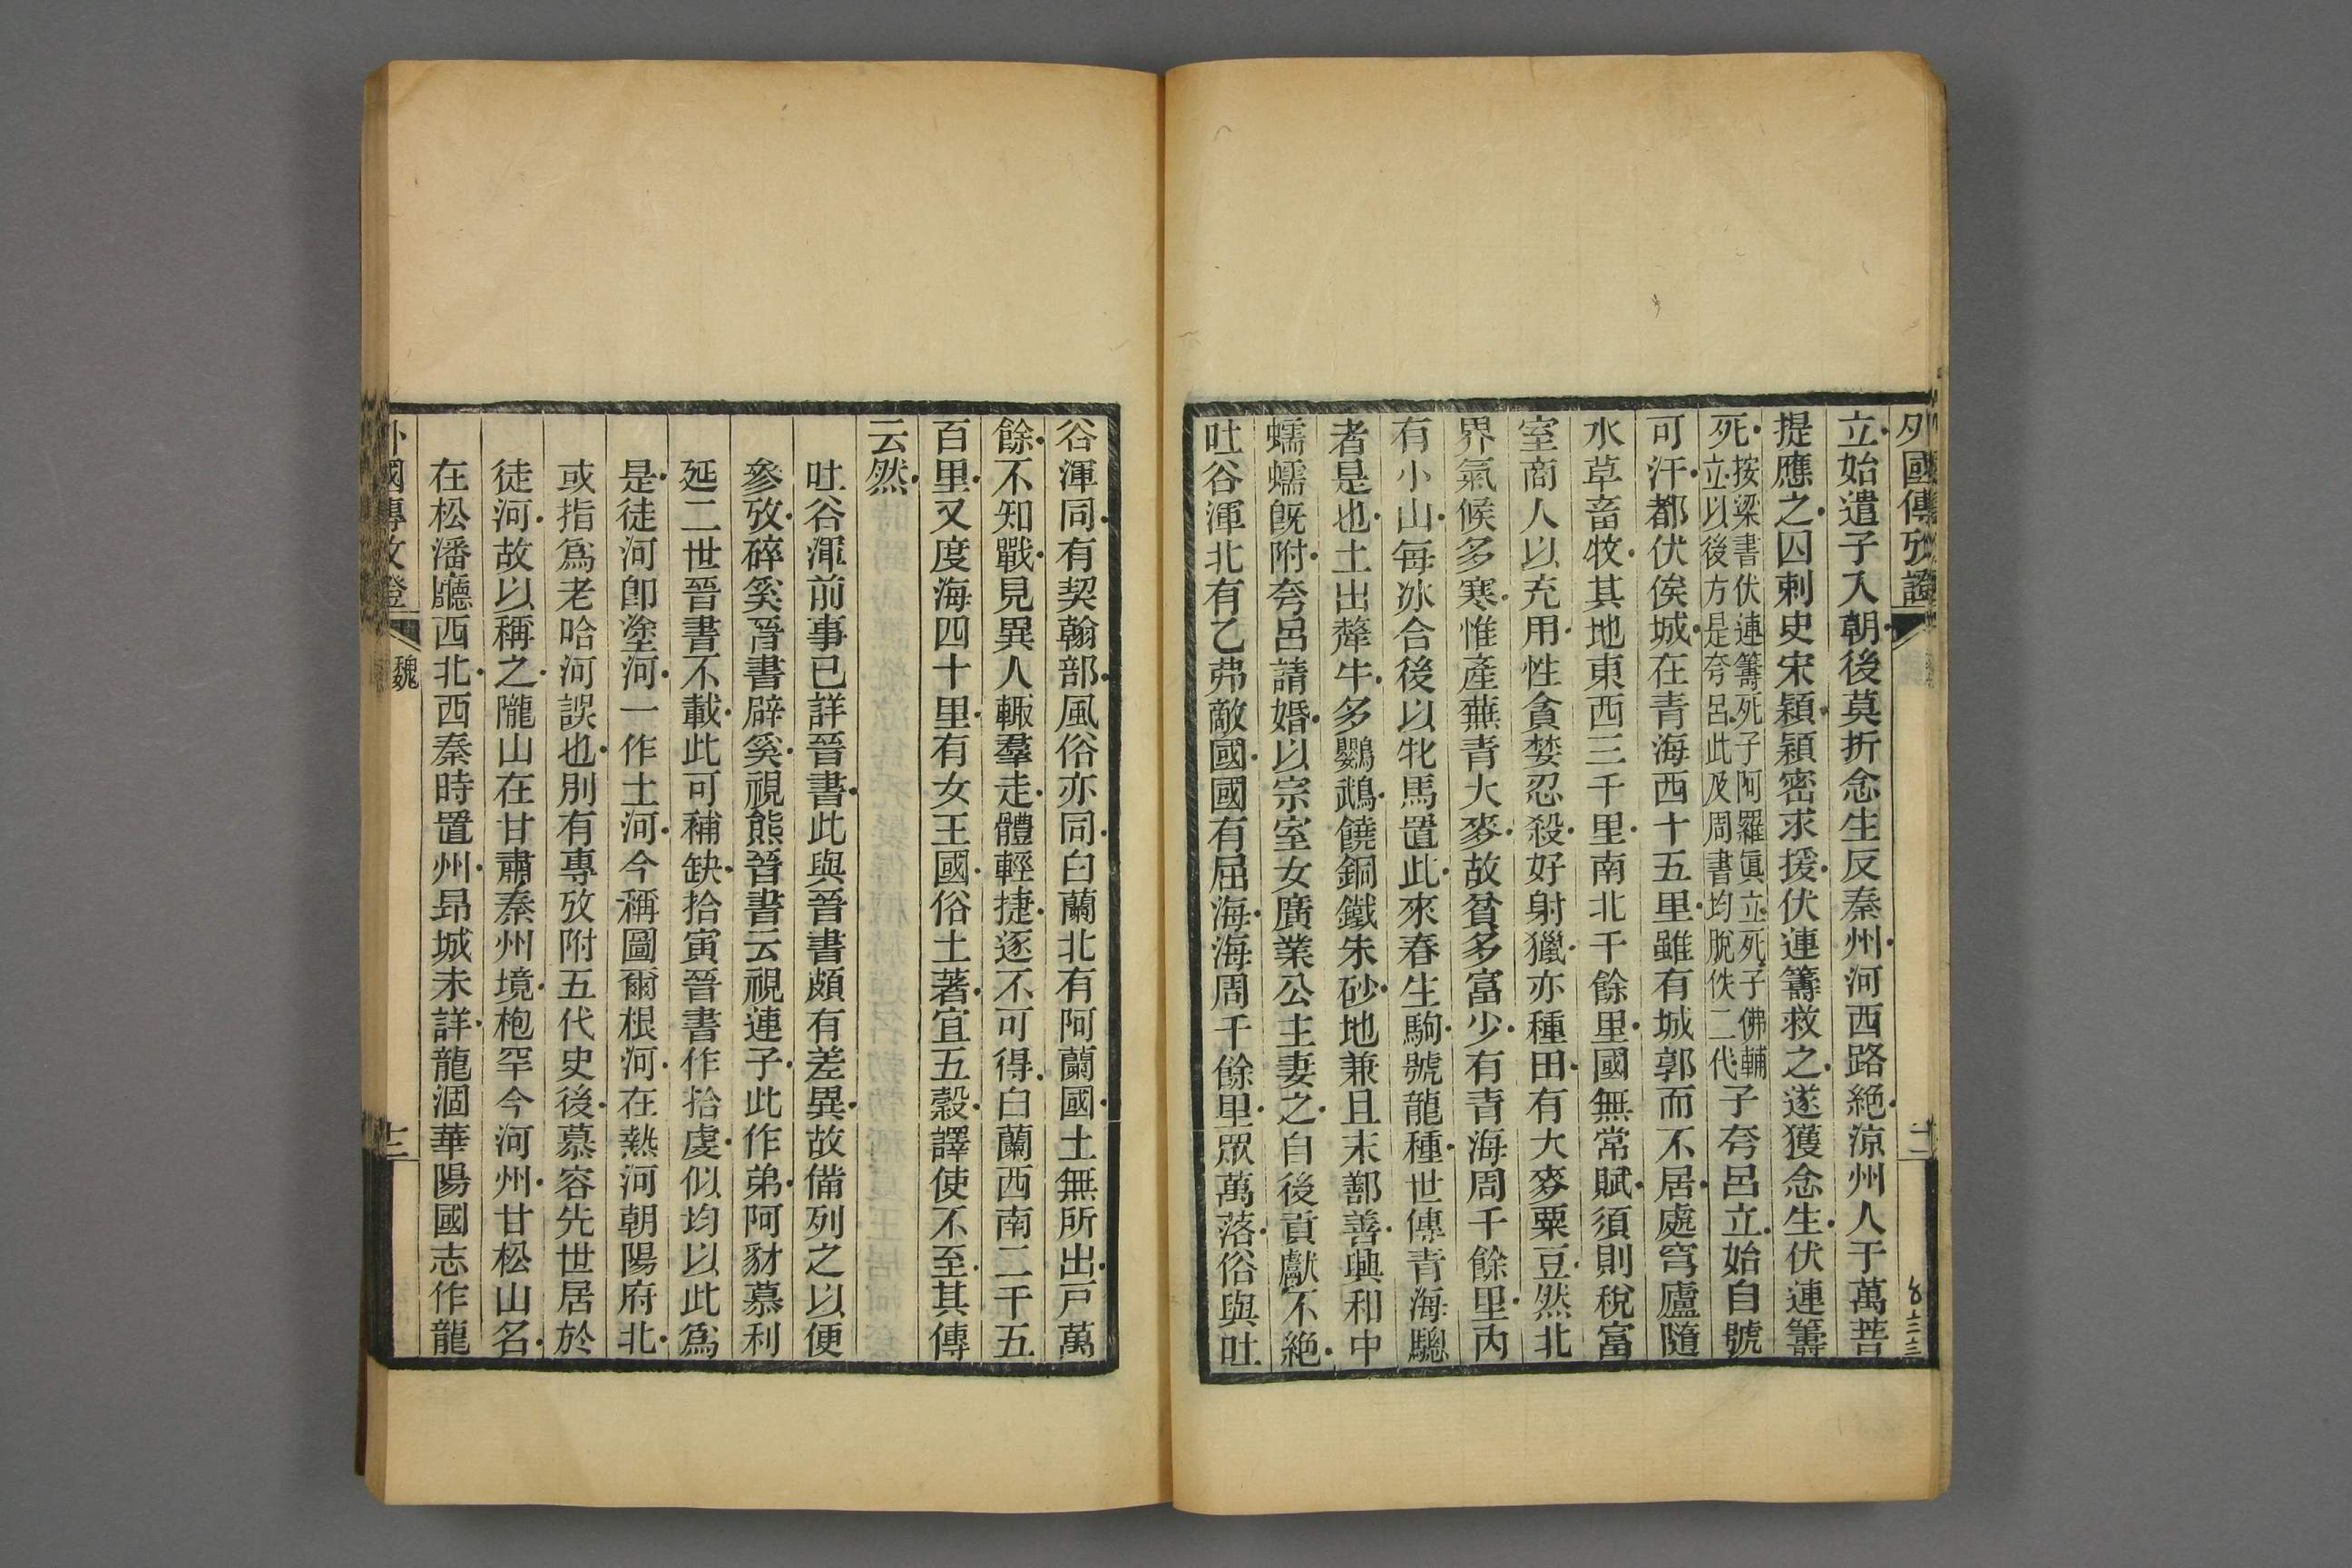 外國傳攷證
立始遣子入朝後莫折念生反秦州河西路絶涼州人于萬菩
提應之囚刺史宋穎穎密求援伏連籌救之遂獲念生伏連籌
死按梁書伏連籌死子阿羅眞立死子佛輔
立以後方是夸呂此及周書均脫佚二代子夸呂立始自號
可汗都伏俟城在青海西十五里雖有城郭而不居處穹廬隨
水草畜牧其地東西三千里南北千餘里國無常賦須則稅富
室商人以充用性貪婪忍殺好射獵亦種田有大麥粟豆然北
界氣候多寒惟產蕪青大麥故貧多富少有青海周千餘里內
有小山每冰合後以牝馬置此來春生駒號龍種世傳青海驄
者是也土出犛牛多鸚鵡饒銅鐵朱砂地兼且末鄯善興和中
蠕蠕旣附夸呂請婚以宗室女廣業公主妻之自後貢獻不絶
吐谷渾北有乙弗敵國國有屈海海周千餘里眾萬落俗與吐
谷渾同有契翰部風俗亦同白蘭北有阿蘭國土無所出戸萬
餘不知戰見異人輙羣走體輕捷逐不可得白蘭西南二千五
百里又度海四十里有女王國俗土著宜五穀譯使不至其傳
云然
吐谷渾前事已詳晉書此與晉書頗有差異故備列之以便
參攷碎奚晉書辟奚視熊晉書云視連子此作弟阿豺慕利
延二世晉書不載此可補缺拾寅晉書作拾虔似均以此爲
是徒河卽塗河一作土河今稱圖爾根河在熱河朝陽府北
或指爲老哈河誤也別有專攷附五代史後慕容先世居於
徒河故以稱之隴山在甘肅秦州境枹罕今河州甘松山名
在松潘廳西北西秦時置州昂城未詳龍涸華陽國志作龍
外國傳攷證
魏
十二